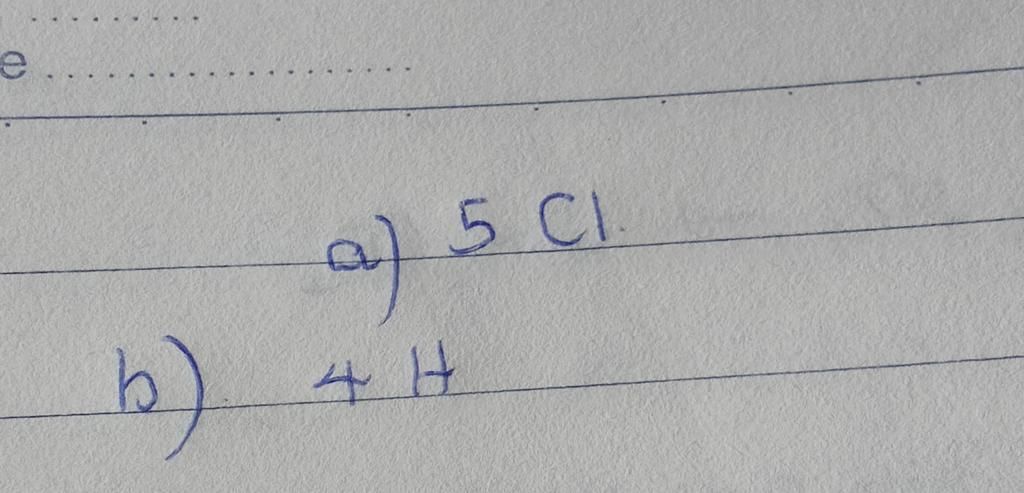 e ...................
a) 5 Cl.
b) 4 H